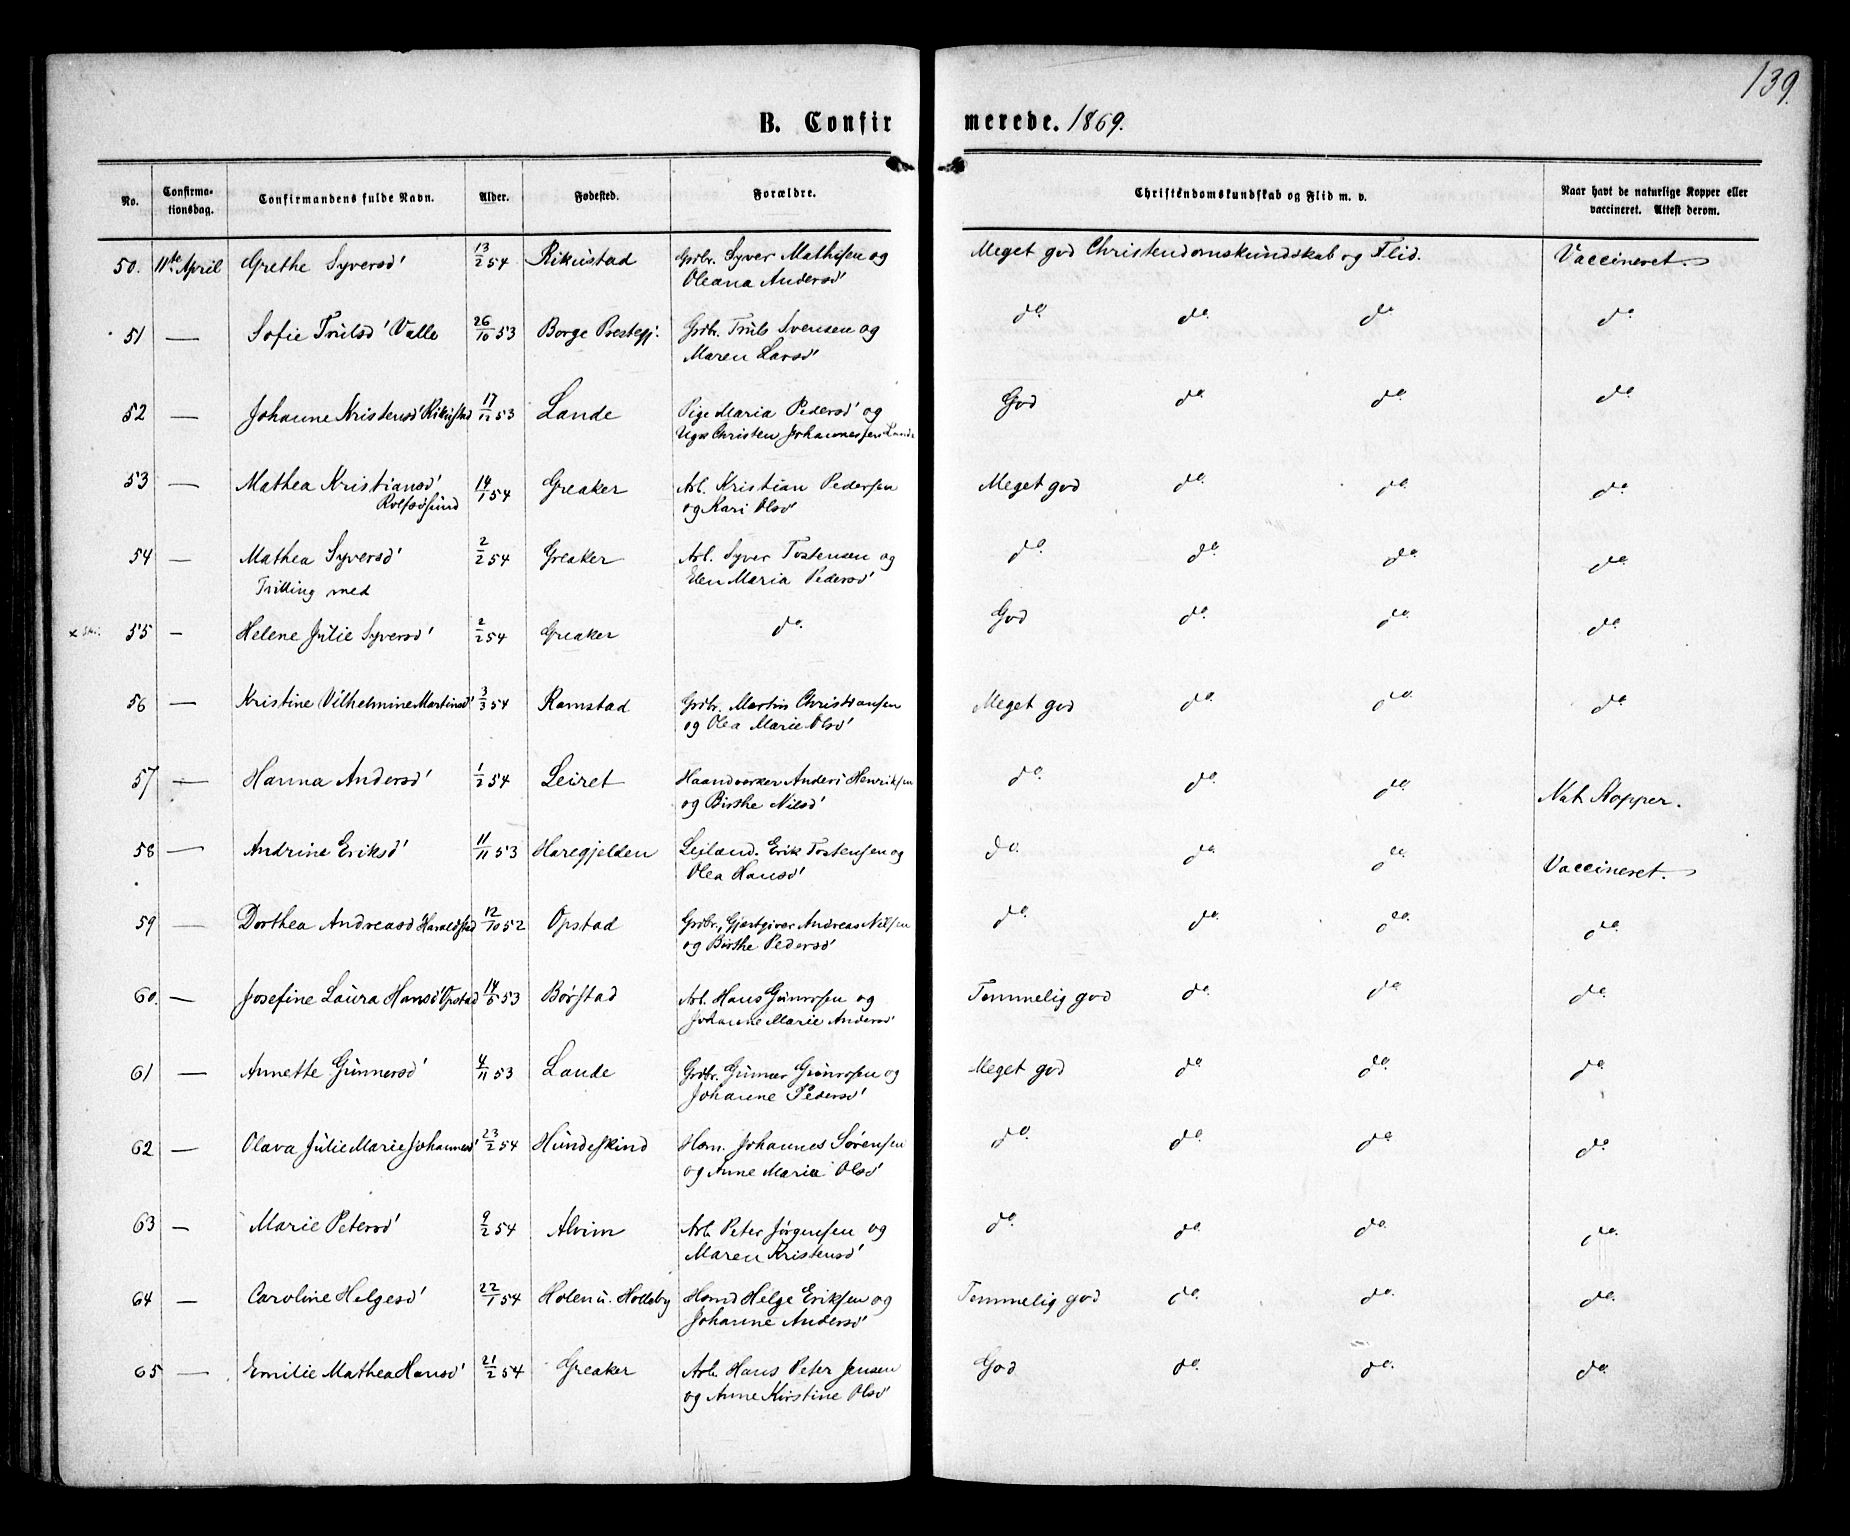 139.
B. Confirmerede. 1869.
No. Confirmationsdag. Confirmandens fulde Navn. Alder. Fødested. Forældre. Christendomskundskab og Flid m. v. Naar havt de naturlige Kopper eller vaccineret. Attest derom.
50. 11te April Grethe Syversd' 13/2 54 Rikustad Grdbr. Syver Mathisen og Meget god Christendomskundskab og Flid. Vaccineret.
Oleana Andersd'
51 — Sofie Trulsd' Valle 26/10 53 Borge Prestegj. Grdbr. Truls Svensen og do. do. do. do.
Maren Larsd'
52 — Johanne Kristensd' Rikustad 17/11 53 Lande Pige Maria Pedersd' og God do. do. do.
Ugk. Christen Johannessen Lande
53 — Mathea Kristiansd' 14/1 54 Greaker Arb. Kristian Pedersen Meget god do. do. do.
Rolfsøsund og Kari Olsd'
54 — Mathea Syversd' 2/2 54 Greaker Arb. Syver Tostensen og do. do. do. do.
Trilling med Elen Maria Pedersd'
55 — Helene Julie Syversd' 2/2 54 Greaker do. God do. do. do.
56 — Kristine Vilhelmine Martinsd' 3/3 54 Ramstad Grdbr. Martin Christiansen Meget god do. do. do.
og Olea Marie Olsd'
57 — Hanna Andersd' 1/2 54 Leiret Haandverker Anders Henriksen do. do. do. Nat. Kopper.
og Birthe Nilsd'
58 — Andrine Eriksd' 11/11 53 Haregjelden Leilænd. Erik Tostensen og do. do. do. Vaccineret.
Olea Hansd'
59 — Dorthea Andreasd' Haraldstad 12/10 52 Opstad Grdbr., Gjæstgiver Andreas Nilsen do. do. do. do.
og Birthe Pedersd'
60. — Josefine Laura Hansd' Opstad 14/6 53 Børstad Arb. Hans Gunersen og Temmelig god do. do. do.
Johanne Marie Andersd'
61 — Annette Gunnersd' 4/11 53 Lande Grdbr. Gunner Gunersen og Meget god do. do. do.
Johanne Pedersd'
62 — Olava Julie Marie Johannesd' 23/2 54 Hundeskind Hsm. Johannes Sørensen do. do. do. do.
og Anne Maria Olsd'
63 — Marie Petersd' 9/2 54 Alvim Arb. Peter Jørgensen og do. do. do. do.
Maren Kristensd'
64 — Caroline Helgesd' 22/1 54 Holen u. Holleby Hsmd Helge Eriksen og Temmelig god do. do. do.
Johanne Andersd'
65 — Emilie Mathea Hansd' 21/2 54 Greaker Arb. Hans Peter Jensen God do. do. do.
og Anne Kirstine Olsd'